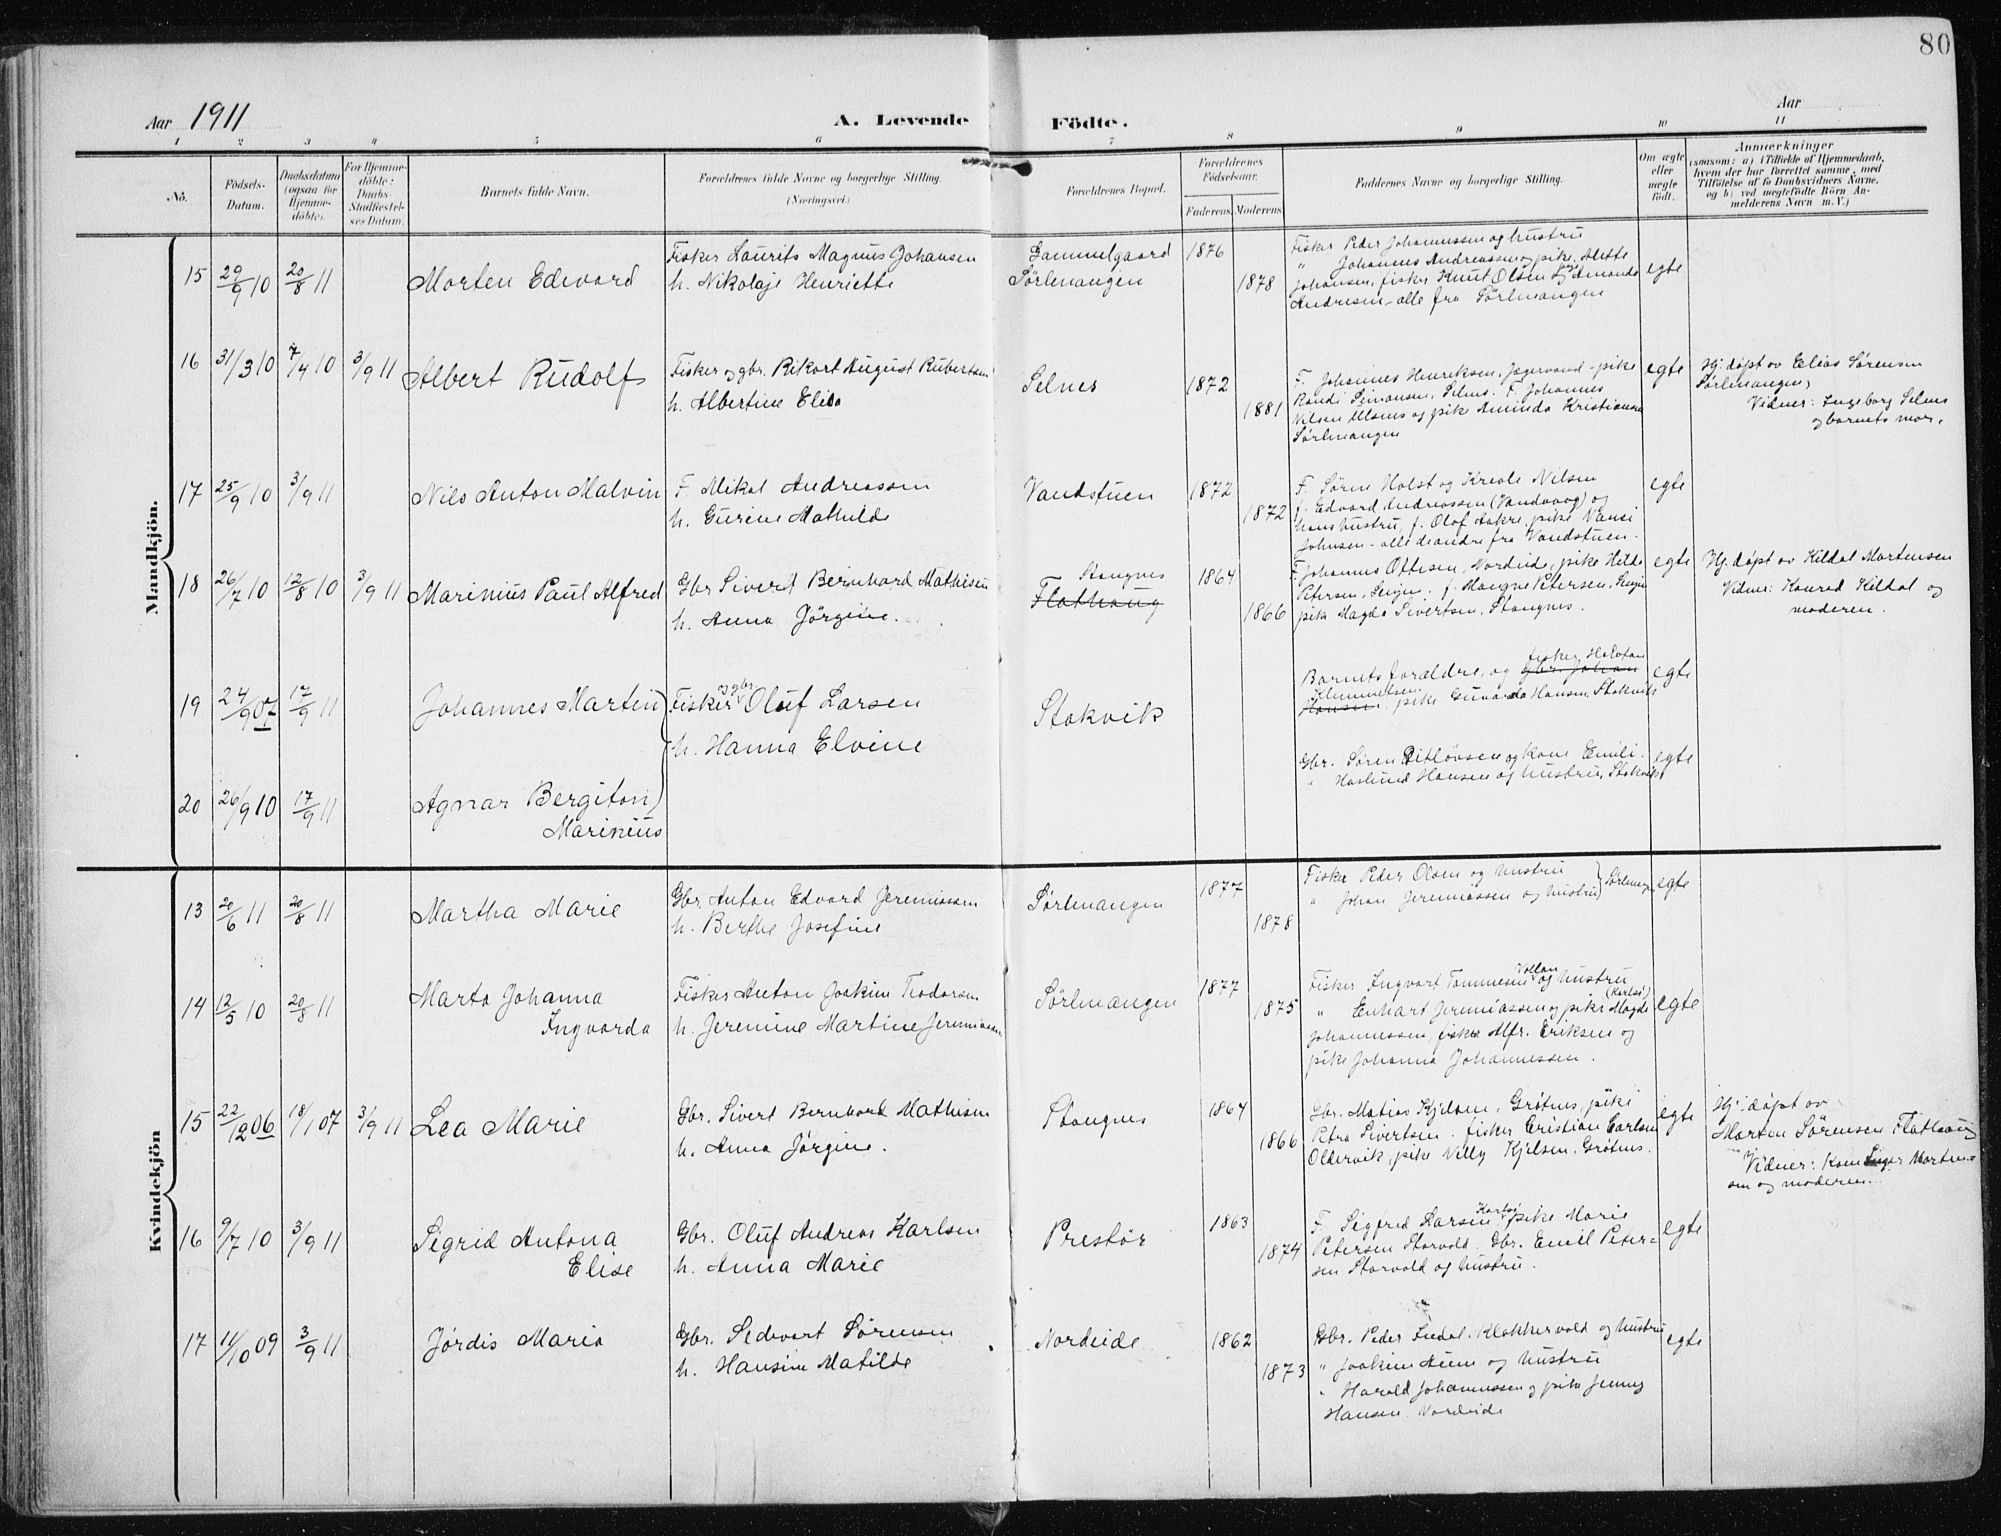 80
Aar 1911
A. Levende
Födte.
Aar
1 2 3 4 5 6 7 8 9 10 11
No.
Födsels-
Datum.
Daabsdatum
(ogsaa for
Hjemme-
döbte).
For Hjemme-
döbte:
Daabs-
Stadfæstel-
ses Datum.
Barnets fulde Navn.
Forældrenes fulde Navne og borgerlige Stilling.
(Næringsvei.)
Forældrenes Bopæl.
Forældrenes
Födselsaar.
Faderens. Moderens.
Faddernes Navne og borgerlige Stilling.
Om ægte
eller
uægte
født.
Anmærkninger
(saasom: a) i Tilfælde af Hjemmedaab,
hvem der har forrettet samme, med
Tilföielse af to Daabsvidners Navne,
og b) ved uægtefödte Börn An-
melderens Navn m. V.)
Mandkjön.
15 29/9 10 20/8 11 Morten Edvard
Fisker Laurits Magnus Johansen
h. Nikolaje Henriette
Gammelgaard
Sørlenangen
1876
1878
Fisker Peder Johannessen og hustru
" Johannes Andreassen og pike Alette
Johansen, fisker Knut Olsen og Amanda
Andresen - alle fra Sørlenangen
egte
16 31/3 10 7/4 10 3/9 11 Albert Rudolf
Fisker og gbr. Rikart August Rubertsen
h. Albertine Elisa
Selnes
1872
1881
F. Johannes Henriksen, Jægervand - pike
Randi Simonsen, Selnes. F. Johannes
Nilsen Ulsnes og pike Aminda Kristiansen
Sørlenangen
egte
Hj. døpt av Elias Sørensen
Sørlenangen,
Vidner: Ingeborg Selnes
og barnets mor.
17 25/9 10 3/9 11 Nils Anton Malvin
F. Mikal Andreassen
h. Gurine Mathilde
Vandstuen
1872
1872
F. Sørne Holst og Kreole Nilsen
f. Edvard Andreassen (Vandvaag) og
hans hustru, f. Olaf Aakre, pike Vansi
Johnsen - alle de andre fra Vandstuen.
egte
18 26/7 10 12/8 10 3/9 11 Marinius Paul Alfred
Gbr Sivert Bernhard Mathisen
h. Anna Jørgine.
Stangnes
Flathaug
1864
1866
F. Johannes Ottesen, Nordeide, pike Hilda
Petersen, Leign. f. Mangne Petersen, Leign
pike Magda Sivertsen, Stangnes.
egte
Hj. døpt av Kildal Mortensen
Vidner: Konrad Kildal og
moderen.
19 24/9 07 17/9 11 Johannes Martin
Fisker og gbr Oluf Larsen
h. Hanna Elvine
Stakvik
Barnets foræld­re, og fisker Halvdan gbr. Johan
Klemmetsen
Hansen, pike Gunarda Hansen, Stakvik
egte
20 26/9 10 17/9 11 Agnar Bergiton
Marinius
Gbr. Søren Ditløvsen og kone Emili.
" Haslund Hansen og hustru, Stakvik
egte
Kvindekjön
13 20/6 11 20/8 11 Martha Marie
Gbr. Anton Edvard Jeremiassen
h. Berthe Josefine
Sørlenangen
1877
1878
Fisker Peder Olsen og hustru
" Johan Jeremiassen og hustru } Sørlenangen
egte
14 12/5 10 20/8 11 Marta Johanna
Ingvarda
Fisker Anton Joakim Teodorsen
h. Jeremine Martine Jeremiassen
Sørlenangen
1877
1875
Fisker Ingvart Tommesen Vollan og hustru
" Enhart Jeremiassen og pike Magda (Karlsø)
Johannessen, fisker Alfr. Eriksen og
pike Johanna Johannessen.
egte
15 22/12 06 18/1 07 3/9 11 Lea Marie
Gbr. Sivert Bernhard Mathisen
h. Anna Jørgine.
Stangnes
1864
1866
Gbr. Matias Kjelsen, Grøtnes, pike
Petra Sivertsen. fisker Cristian Carlsen
Oldervik, pike Villy Kjelsen, Grøtnes.
egte
Hj. døpt av
Morten Sørensen Flathaug
Vidner: Kone Inger Morten-
sen og moderen.
16 9/7 10 3/9 11 Sigrid Antona
Elise
Gbr. Oluf Andreas Karlsen
h. Anna Marie
Prestør
1863
1874
F. Sigfred Larsen Karlsø, pike Marie
Petersen Storvold. Gbr. Emil Peter-
sen Storvold og hustru.
egte
17 11/10 09 3/9 11 Jørdis Maria
Gbr. Sedvart Sørensen
h. Hansine Matilde
Nordeide
1862
1873
Gbr. Peder Indal. Klokkervold og hustru
" Joakim Aune og hustru
" Harald Johannessen og pike Jenny
Hansen. Nordeide
egte